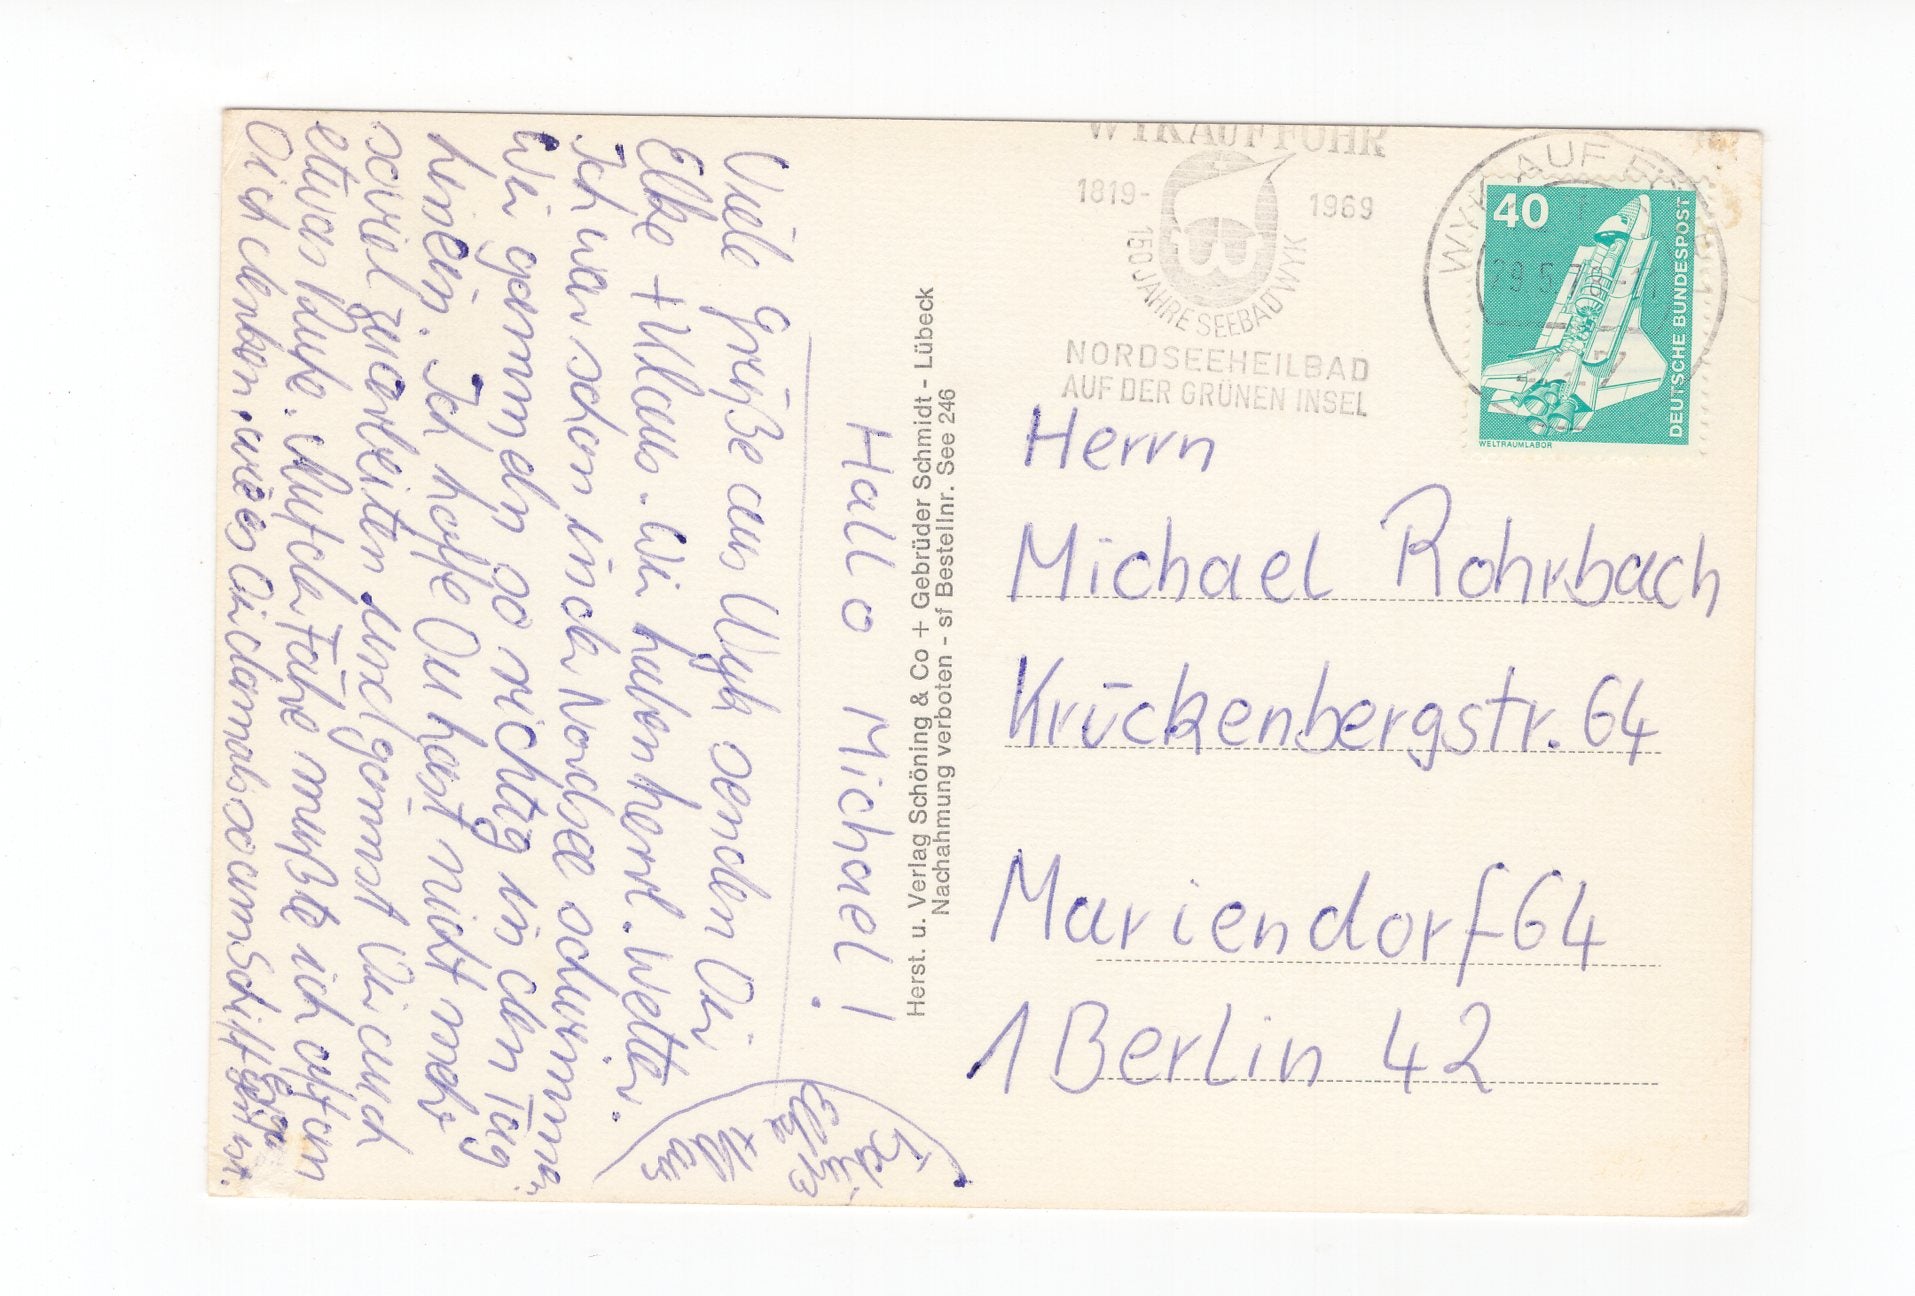 Hallo Michael!
Viele Grüße aus Wyk senden Dir
Elke + Klaus. Wir haben herrl. Wetter.
Ich war schon in der Nordsee schwimmen.
Wir gammeln so richtig in den Tag
hinein. Ich hoffe Du hast nicht mehr
soviel zu arbeiten und gönnst Dir auch
etwas Ruhe. Auf der Fähre mußte ich oft an
Dich denken, wie es Dir damals so am Schiff
Elke
Klaus
Herst. u. Verlag Schöning & Co + Gebrüder Schmidt - Lübeck
Nachahmung verboten - sf Bestellnr. See 246
WYK AUF FÖHR
1819-1969
150 JAHRE SEEBAD WYK
NORDSEEHEILBAD
AUF DER GRÜNEN INSEL
WYK AUF
40
DEUTSCHE BUNDESPOST
WELTRAUMLABOR
Herrn
Michael Rohrbach
Krückenbergstr. 64
Mariendorf 64
1 Berlin 42